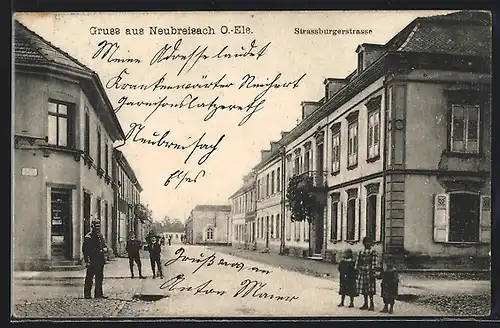 Gruss aus Neubreisach O.-Els.
Strassburgerstrasse
Meine Adresse lautet
Krankenwärter Reichert
Garnisonslatzereth
Neubreisach
Elses
Gruß an
Anton Maier